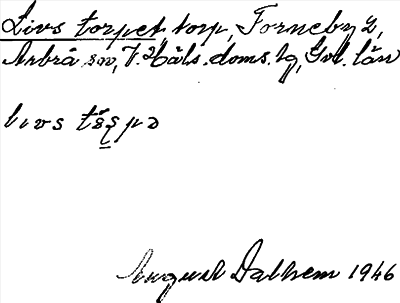 Livs torpet, torp, Forneby 2,
Arbrå sn, V. Häls. doms. hg, Gvl. län
livs tå̱s̱pə
August Dalhem 1946